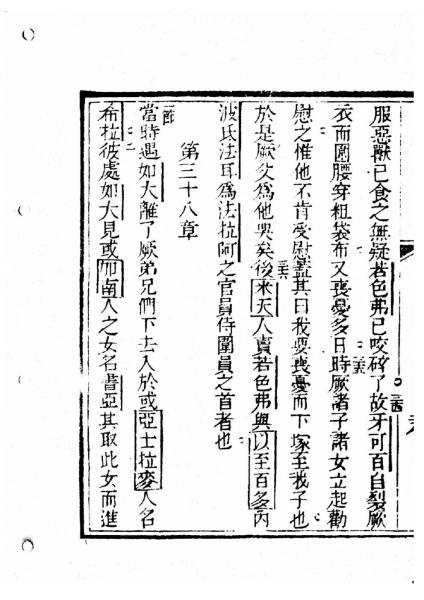 服惡獸已食之無疑若色弗已咬碎了故牙可百自裂厥
衣而圍腰穿粗袋布又喪憂多日時厥諸子諸女立起勸
慰之惟他不肯受慰蓋其曰我要喪憂而下塚至我子也
於是厥父為他哭矣後米天人賣若色弗與以至百多丙
波氏法耳為法拉阿之官員侍圍員之首者也
第三十八章
當時遇如大離了厥弟兄們下去入於或亞士拉麥人名
希拉彼處如大見或加南人之女名書亞其取此女而進